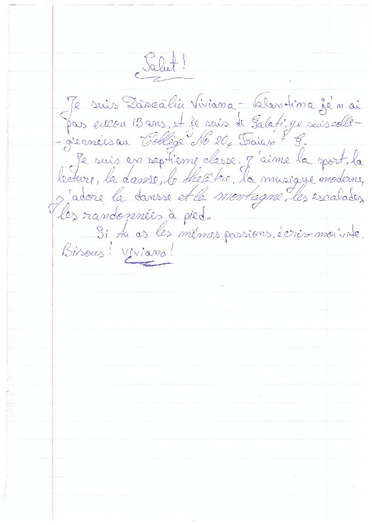 Salut!
Je suis Dascălu Viviana - Valantina jé n ai
pas encou 13 ans, et je suis de Galaţi, je suis collé-
giennéis au "Collège No 20, Traian" G.
Je suis en septième classe. J'aime la sport, la
lecture, la danse, le théâtre, la musique moderne,
j'adore la dansse et la montagne, les escalades,
les randonnées à pied.
Si tu as les mêmes passions, écris-moi vite.
Bisous! Viviana!